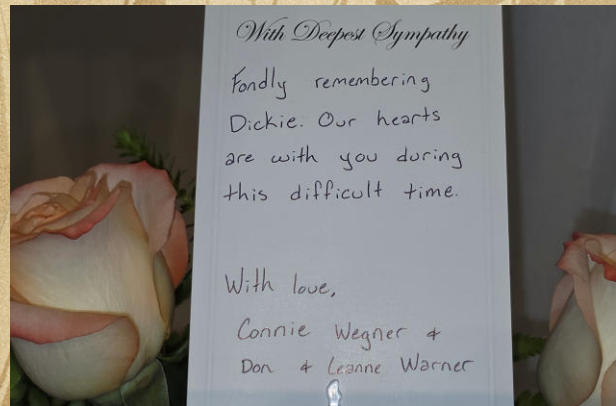 With Deepest Sympathy
Fondly remembering
Dickie. Our hearts
are with you during
this difficult time.
With love,
Connie Wegner &
Don & Leanne Warner